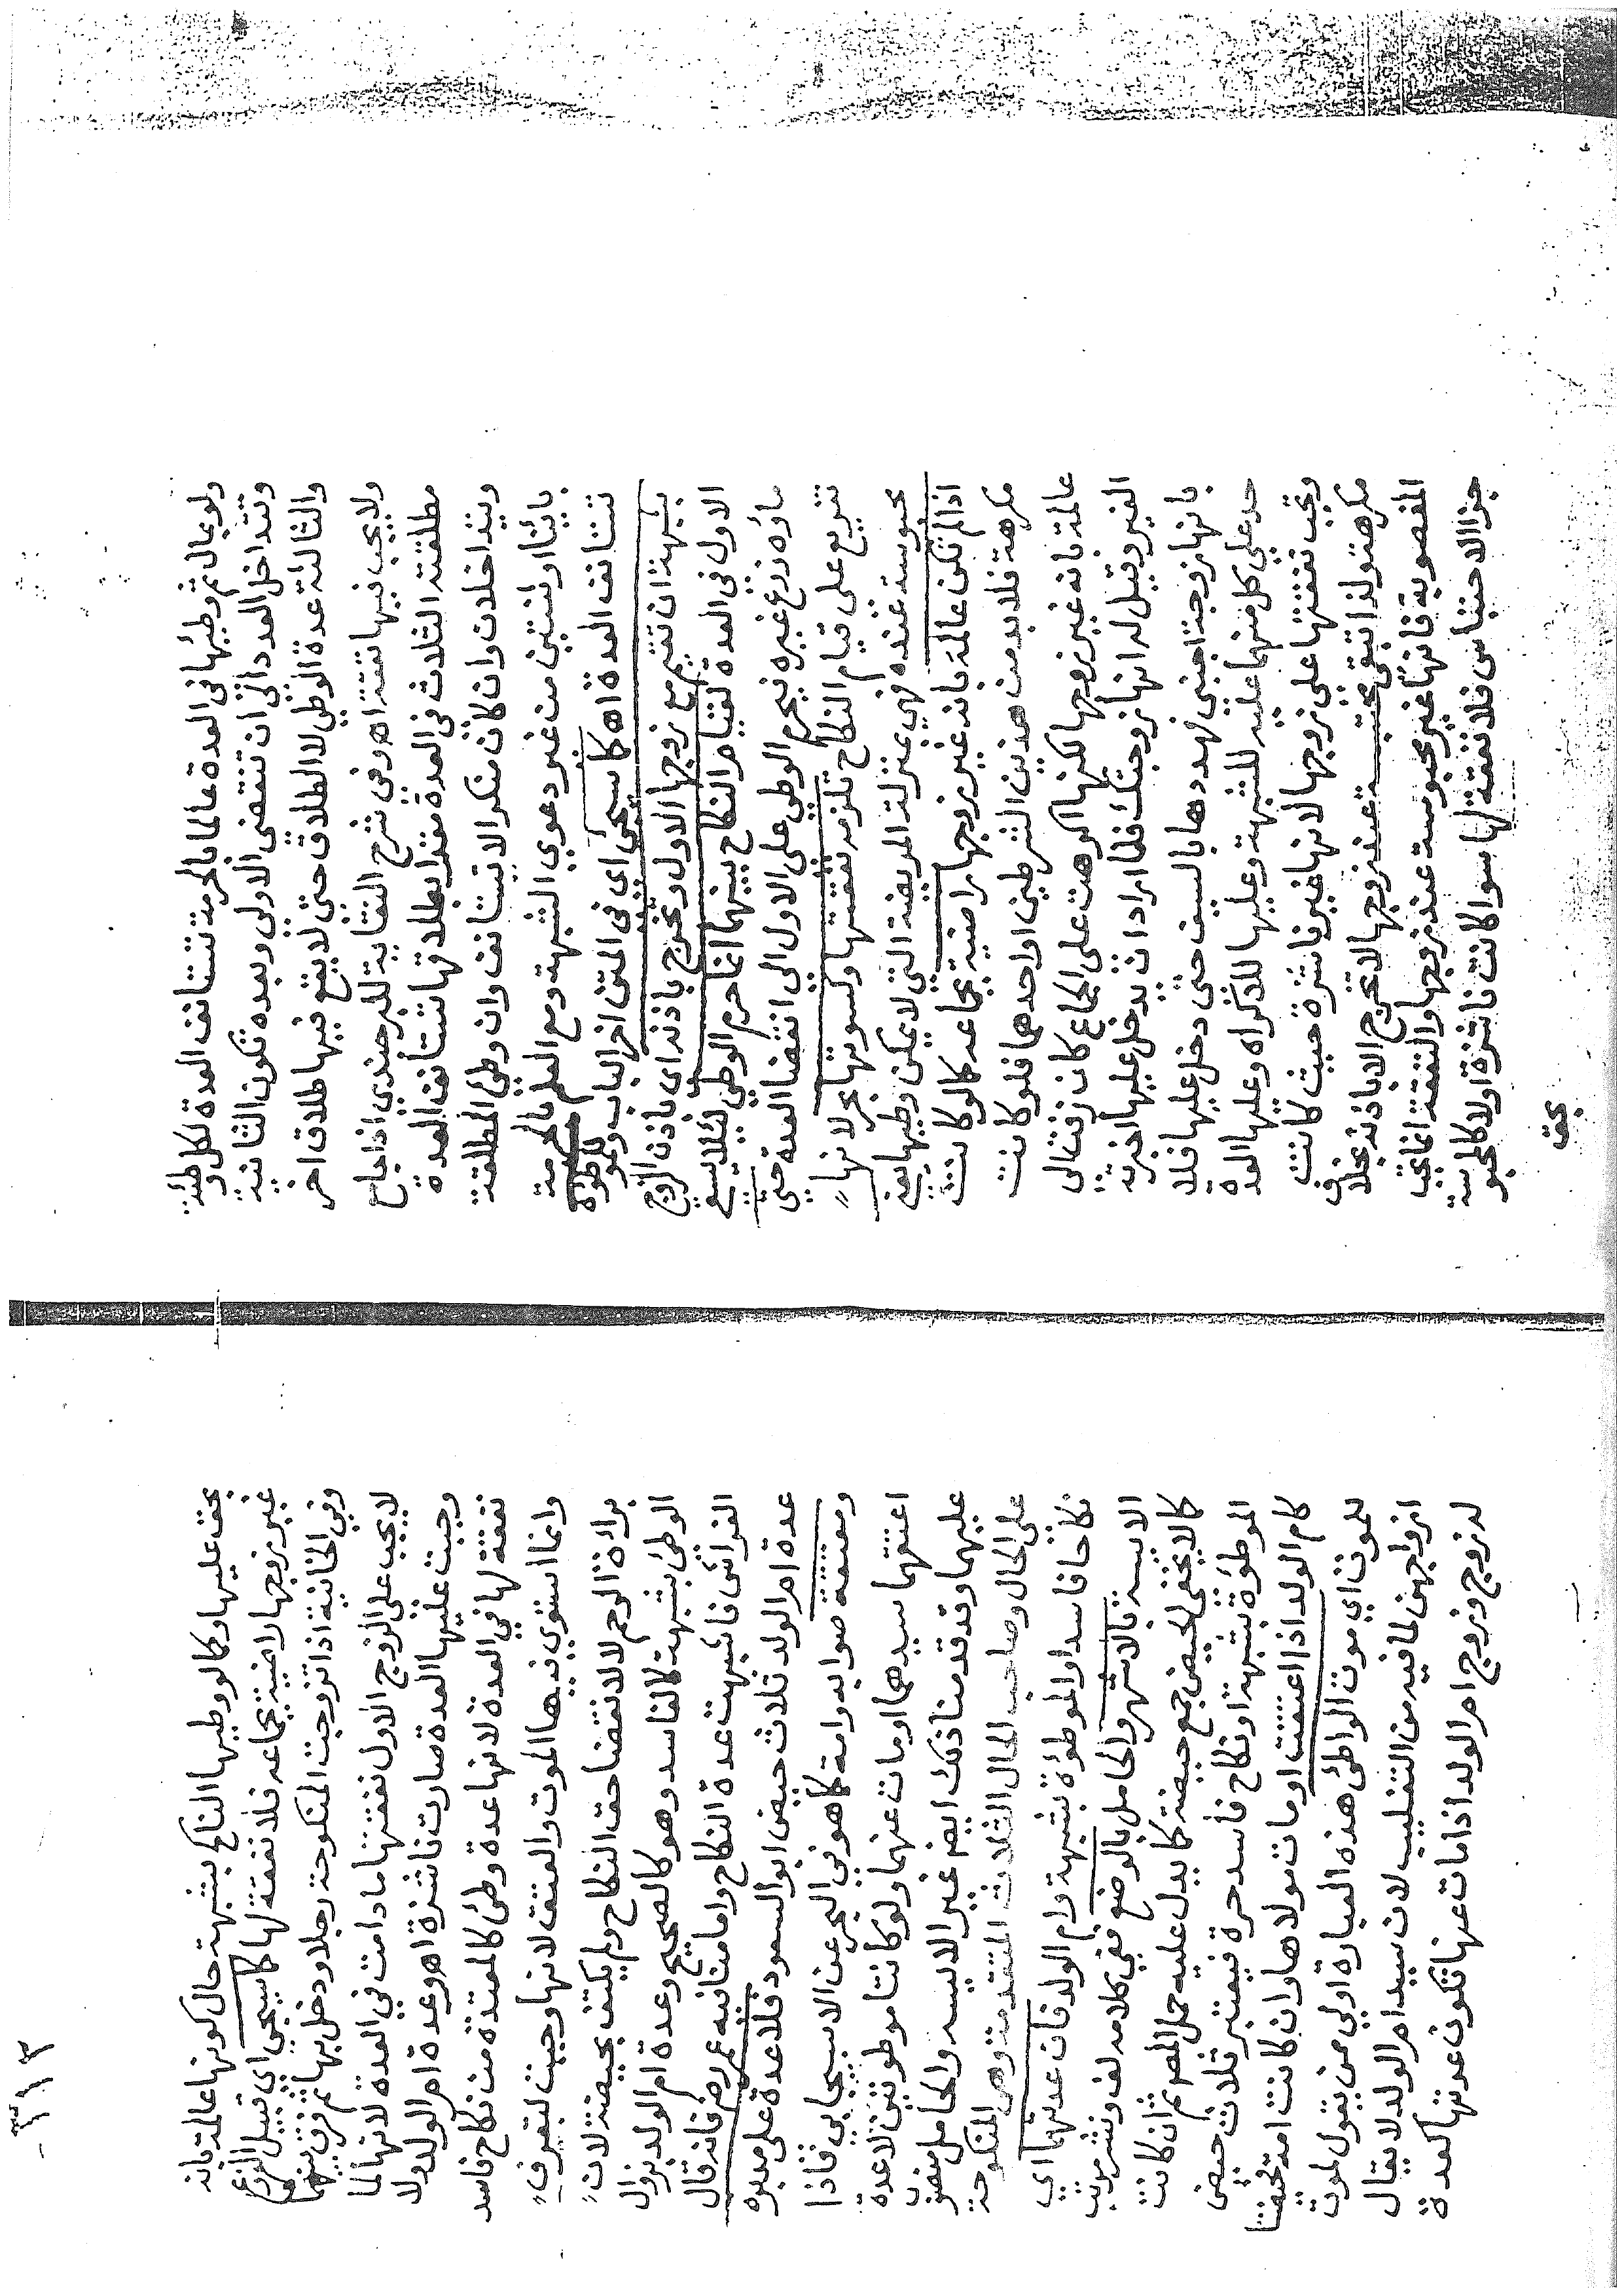 ولو بحال ثم وطئها في العدة عالما بالحرمة تستانف العدة لكل وطئة
وتتداخل العدد الى ان تنقضى الاولى وبعده تكون الثانية
والثالثة عدة الوطي لا الطلاق حتى لا يقع فيها طلاق اخر
ولا يجب فيها نفقة اه وفي شرح النقاية للبرجندي اذا جامع
مطلقته الثلاث في العدة مقرا بطلاقها تستانف العدة
ويتداخلان وان كان منكرا لا تستانف وان وطئ المطلقة
بائنا او ثنتين من غير دعوي الشبهة ومع العلم بالحرمة
تستانف العدة اه كما سيجئ اى في المتن اخر الباب وللموطؤة
بشبهة ان تقيم مع زوجها الاول وتخرج باذنه اى باذن الزوج
الاول في العدة لقيام النكاح بينهما انما حرم الوطئ لئلا يسقي
ماؤه زرع غيره فيحرم الوطي على الاول الى انقضا العدة حتى
تفريع على قيام النكاح تلزمه نفقتها وكسوتها بحر لانها
محبوسة عنده فهي بمنزلة المريضة التي لا يمكن وطيها يعنى
اذا لم تكن عالمة بانه غير زوجها راضية بجماعه كما لو كانت
مكرهة فلا بد من هذين الشرطين او احدهما فلو كانت
عالمة بانه غير زوجها لكنها اكرهت على الجماع كان زفت الى
الغير وقيل له انها زوجتك فلما اراد ان يدخل عليها اخبرته
بانها زوجة اجنبى فهددها بالسيف حتى دخل عليها فلا
حد على كل منهما عليه للشبهة وعليها للاكراه وعليها العدة
وتجب نفقتها على زوجها لانها غير ناشزة حيث كانت
مكرهة ولذا تبقى محتبسة عند زوجها لا تخرج الا باذنه بخلاف
المغصوبة فانها غير محبوسة عند زوجها والنفقة انما تجب
جزا الاحتباس فلا نفقة لها سوا كانت ناشزة او لا كالمحبوسة
بحق
بحق عليها وكما لو وطيها الناكح بشبهة حال كونها عالمة بانه
غير زوجها راضية بجماعه فلا نفقة لها كما سيجي اي قبيل الفروع
وفي الخانية اذا تزوجت المنكوحة رجلا ودخل بها ثم فرق بينهما
لا يجب على الزوج الاول نفقتها ما دامت في العدة لانها لما
وجبت عليها العدة صارت ناشزة اه وعدة ام الولد ولا
نفقة لها في العدة لانها عدة وطئ كالمعتدة من نكاح فاسد
وانما استوي فيها الموت والعتق لانها وجبت لتعرف
براءة الرحم لا لانقضا حق النكاح ولم يكتف بحيضة لان
الوطئ بشبهة كالفاسد وهو كالصحيح وعدة ام الولد بزوال
الفراش فاشبهت عدة النكاح وامامنا فيه عمر رضى فانه قال
عدة ام الولد ثلاث حيض ابو السعود فلا عدة على مدبره
ومعتقة صوابه وامة كما هو في البحر عن الاسبيجابي فاذا
اعتقهما سيدهما او مات عنهما ولو كانتا موطوئتين لا عدة
عليهما وقد قدمنا ذلك ايضا غير الايسه والحامل منصوب
على الحال وصاحب الحال الثلاث المتقدمة وهى المنكوحة
نكاحا فاسدا والموطؤة بشبهة وام الولد فان عدتهما اي
الايسة بالاشهر والحامل بالوضع ففي كلامه لف ونشر مرتب
كما لا يخفى الحيض جمع حيضة كما يدل عليه حمل المص ثم ان كانت
الموطؤة بشبهة او نكاح فاسد حرة فيعتبر ثلاث حيض
كام الولد اذا اعتقت او مات مولاها وان كانت امة فحيضتا
للموت اي موت الواطئ هذه العبارة اولي من يقول لموت
ازواجهن لما فيه من التغليب لان سيد ام الولد لا يقال
له زوج وزوج ام الولد اذا مات عنها تكون عدتها كعدة
٣١٣